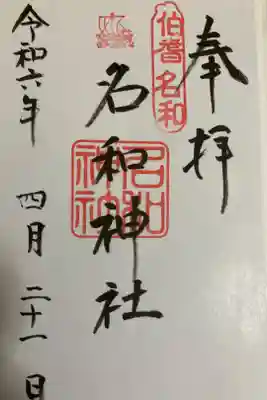 奉拝
伯耆名和
名和神社
名和神社
令和六年 四月 二十一日